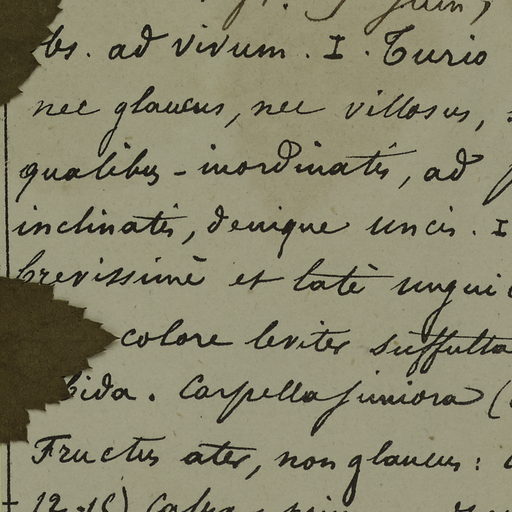 bs. ad vivum. I. Turio
nec glaucus, nec villosus,
qualibus - inordinatis, ad
inclinatis, denique uncis. I
brevissimè et latè ungui
colore leviter suffulta
bida. Carpella juniora (
Fructus ater, non glaucus:
12-15)